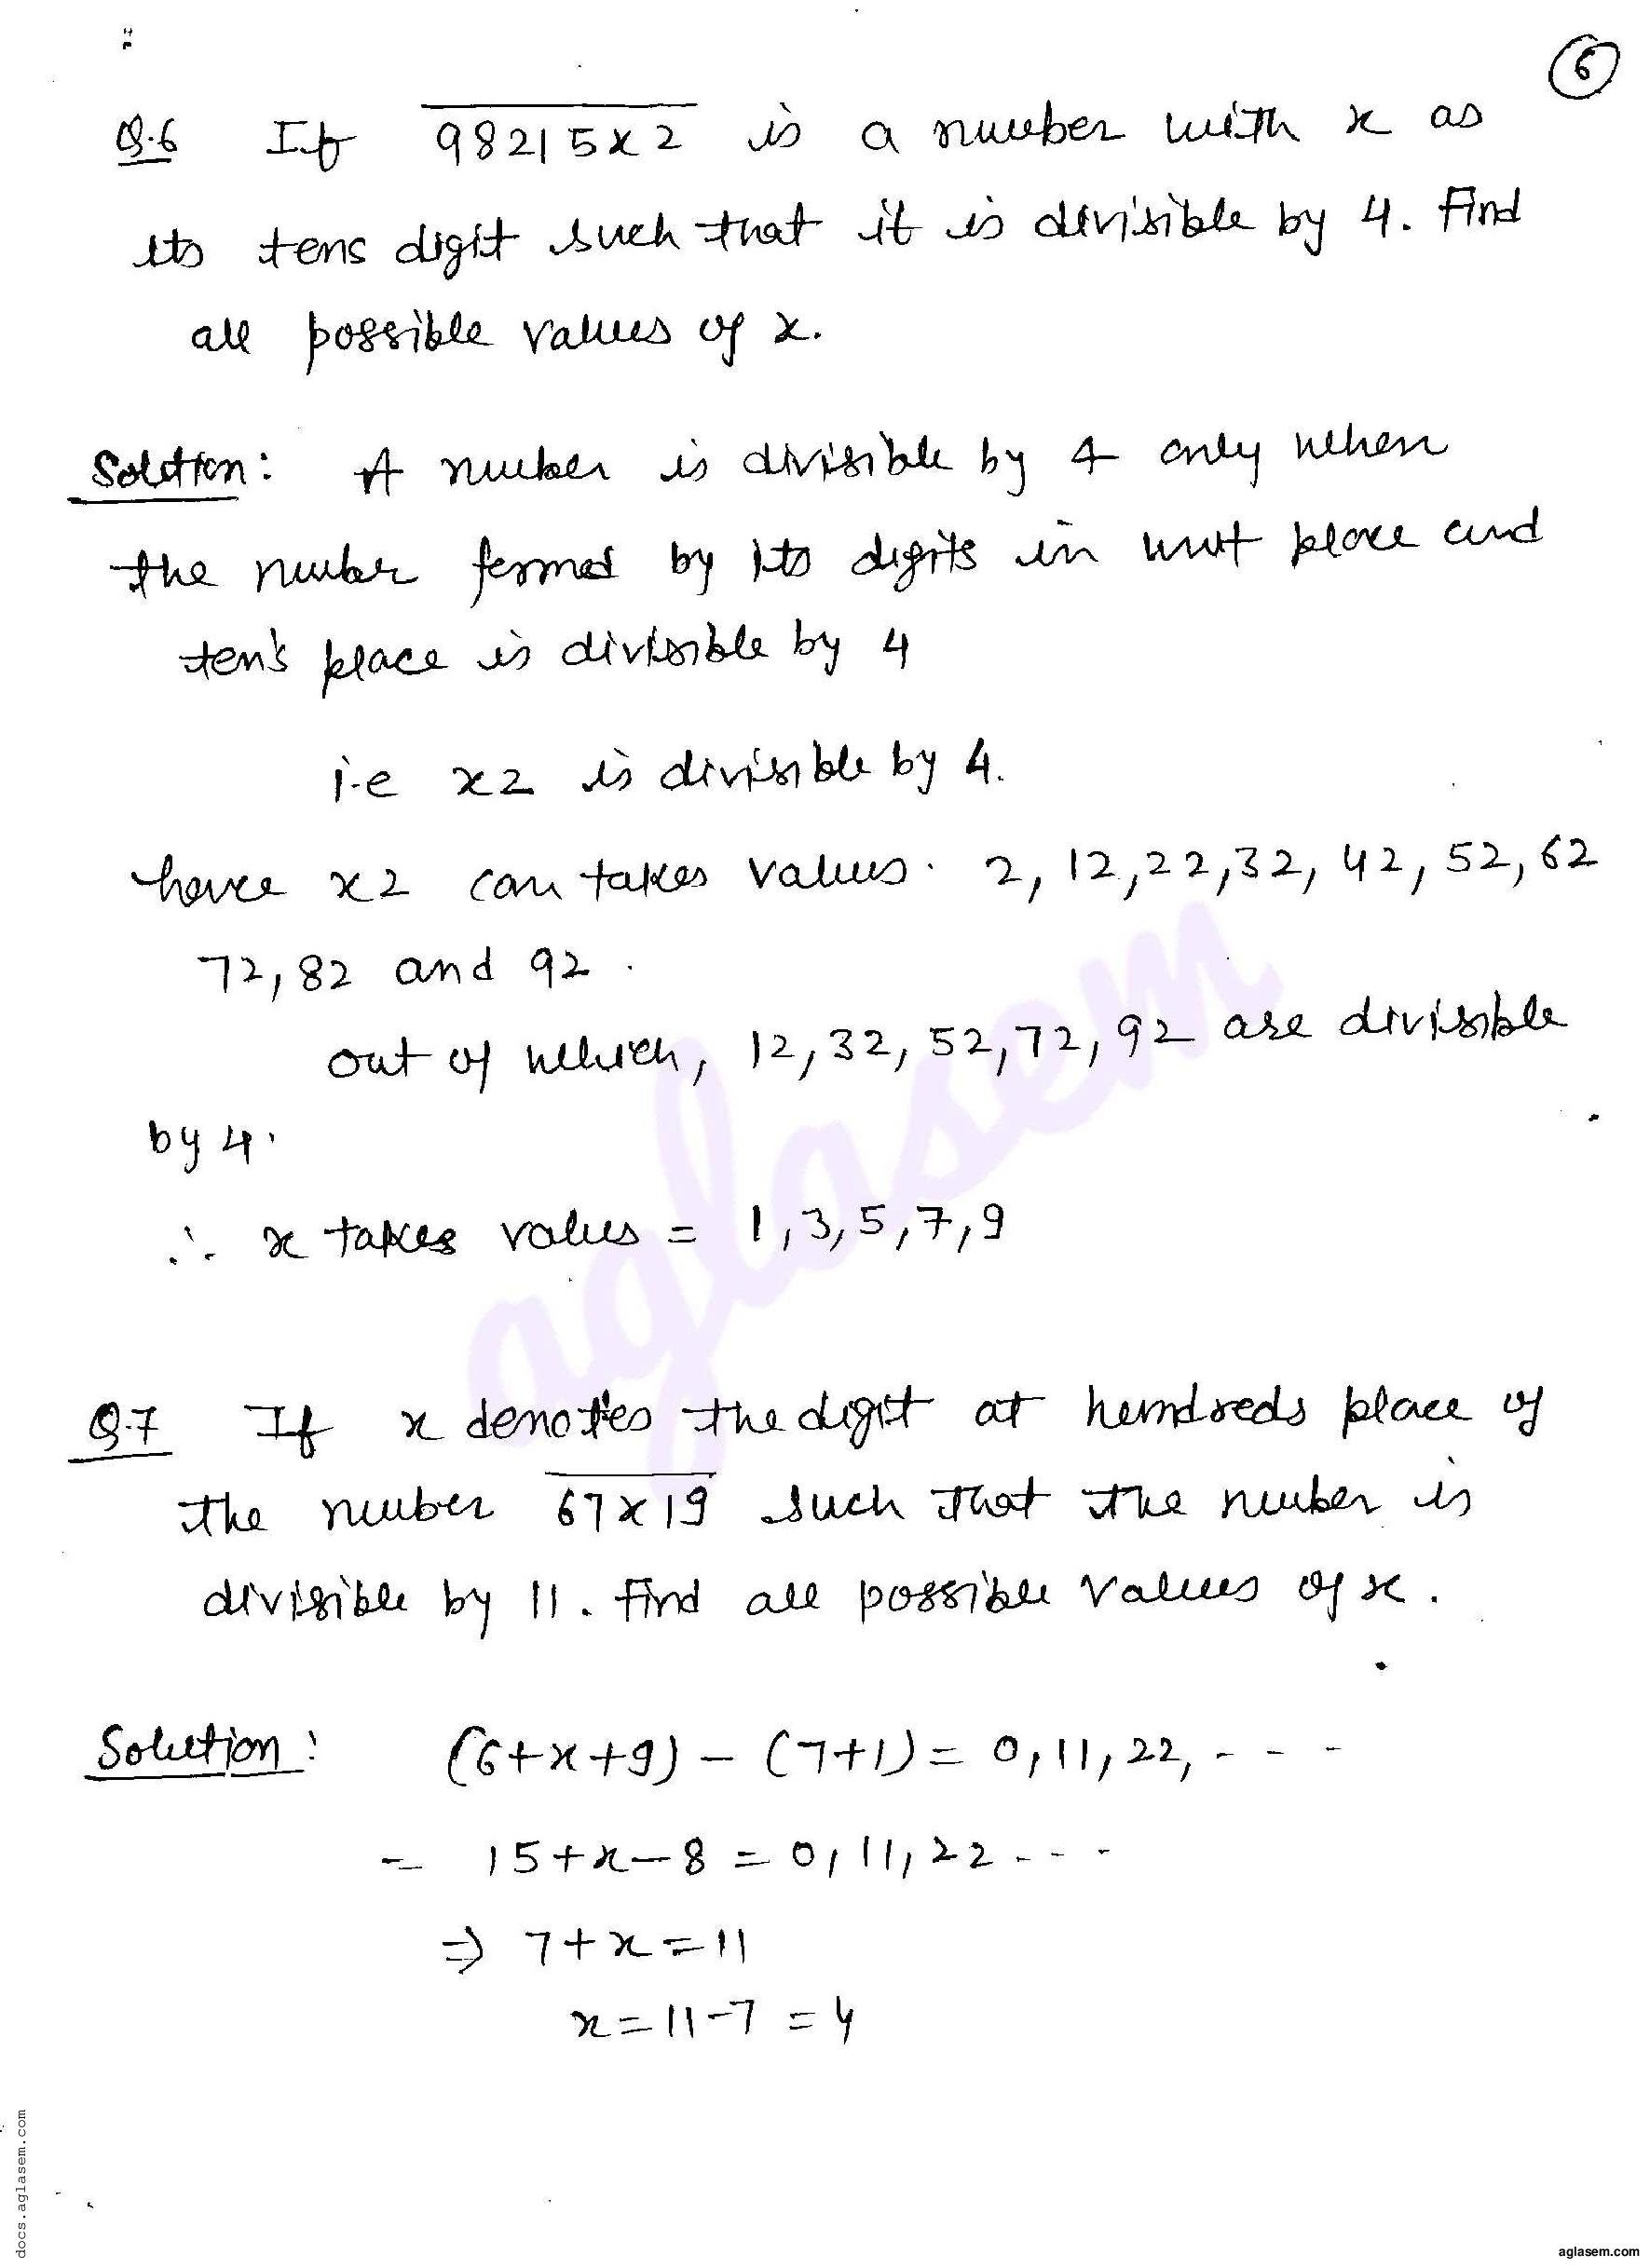 6
Q.6 If 98215x2 is a number with x as
its tens digit such that it is divisible by 4. Find
all possible values of x.
Solution: A number is divisible by 4 only when
the number formed by its digits in unit place and
ten's place is divisible by 4
i.e x2 is divisible by 4.
hence x2 can takes values. 2, 12, 22, 32, 42, 52, 62
72, 82 and 92.
out of which, 12, 32, 52, 72, 92 are divisible
by 4.
∴ x takes values = 1, 3, 5, 7, 9
Q.7 If x denotes the digit at hundreds place of
the number 67x19 such that the number is
divisible by 11. Find all possible values of x.
Solution: (6+x+9) - (7+1) = 0, 11, 22, - - -
= 15+x-8 = 0, 11, 22 - - -
⇒ 7+x = 11
x = 11-7 = 4
aglasem
docs.aglasem.com
aglasem.com